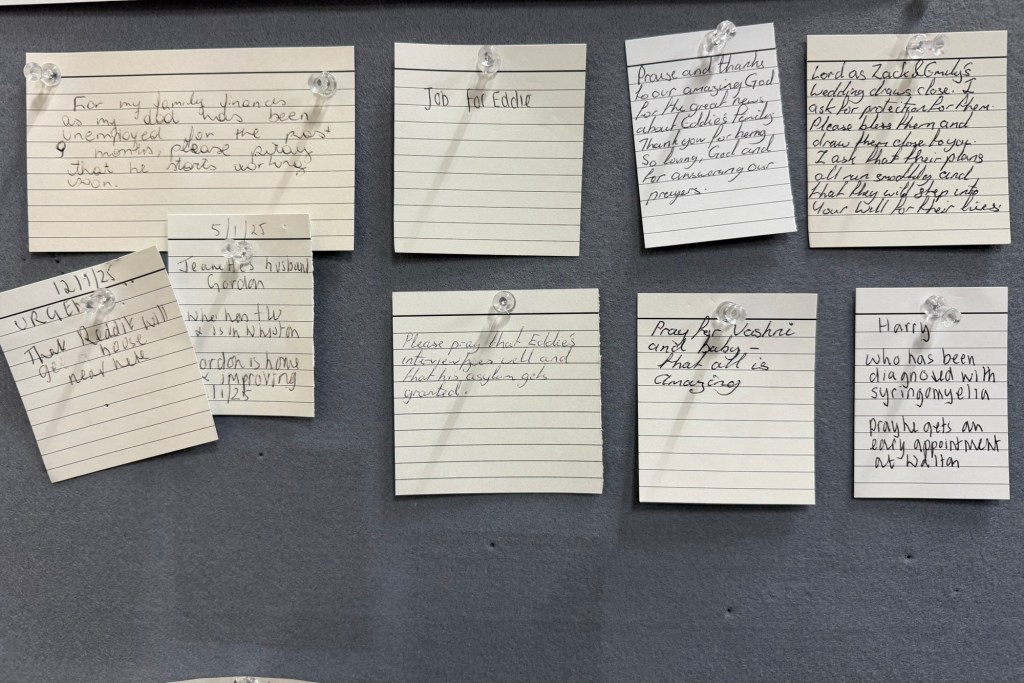 For my family finances
as my dad has been
unemployed for the past
9 months, please pray
that he starts working
soon.
Job for Eddie
Praise and thanks
to our amazing God
for the great news
about Eddie's
Thank you for being
so loving, God and
for answering our
prayers.
Lord as Zack & Emily's
wedding draws close. I
ask for protection for them.
Please bless them and
draw them close to you.
I ask that their plans
all run smoothly and
that they will step into
Your Will for their lives
12/1/25
URGENT
That Reddit will
get house
near here
5/1/25
Jeanette's husband
Gordon
who has the
& is in
Gordon is home
& improving
/1/25
Please pray that Eddie's
interview goes well and
that his asylum gets
granted.
Pray for Vashni
and baby –
that all is
amazing
Harry
who has been
diagnosed with
syringomyelia
pray he gets an
early appointment
at Walton